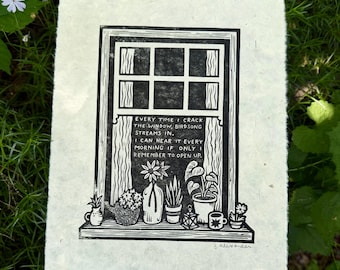 EVERY TIME I CRACK
THE WINDOW, BIRDSONG
STREAMS IN.
I CAN HEAR IT EVERY
MORNING IF ONLY I
REMEMBER TO OPEN UP.